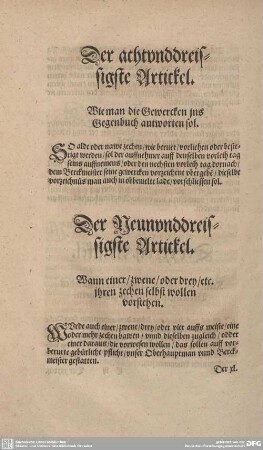 Der achtvnddreis-
sigste Artickel.
Wie man die Gewercken jns
Gegenbuch antworten sol.
SO alde oder nawe zechen / wie berurt / vorlihen oder beste-
tiget werden / sol der auffnehmer auff denselben vorleih tag
seins auffnemens / oder den nechsten vorleih tag dernach /
dem Berckmeister seine gewercken vorzeichent vbergebe / dieselbe
vorzeichnüs man auch in obbenelte lade / vorschliessen sol.
Der Neunvnddreis-
sigste Artickel.
Wann einer / zwene / oder drey / etc.
jhren zechen selbst wollen
vorstehen.
WVrde auch einer / zwene / drey / oder vier auffs meiste / eine
oder mehr zechen bawen / vnnd dieselben zugleich / odder
einer daraus / die vorwesen wollen / das sollen auff vor-
berurte gebürliche pflicht / vnser Oberhauptman vnnd Berck-
meister gestatten.
Der xl.